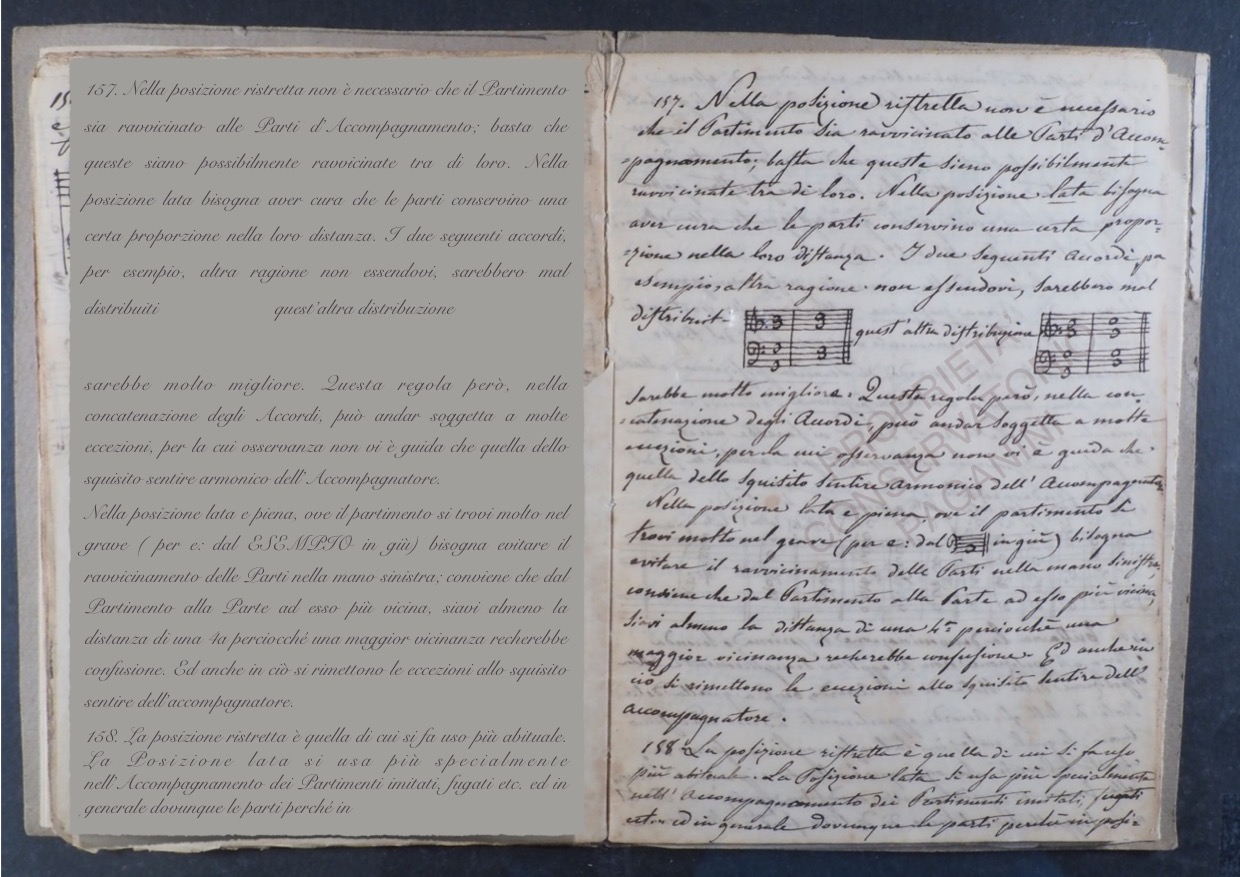 157. Nella posizione ristretta non è necessario che il Partimento
sia ravvicinato alle Parti d'Accompagnamento; basta che
queste siano possibilmente ravvicinate tra di loro. Nella
posizione lata bisogna aver cura che le parti conservino una
certa proporzione nella loro distanza. I due seguenti accordi,
per esempio, altra ragione non essendovi, sarebbero mal
distribuiti quest'altra distribuzione
sarebbe molto migliore. Questa regola però, nella
concatenazione degli Accordi, può andar soggetta a molte
eccezioni, per la cui osservanza non vi è guida che quella dello
squisito sentire armonico dell'Accompagnatore.
Nella posizione lata e piena, ove il partimento si trovi molto nel
grave ( per e: dal ESEMPIO in giù) bisogna evitare il
ravvicinamento delle Parti nella mano sinistra; conviene che dal
Partimento alla Parte ad esso più vicina, siavi almeno la
distanza di una 4a perciocché una maggior vicinanza recherebbe
confusione. Ed anche in ciò si rimettono le eccezioni allo squisito
sentire dell'accompagnatore.
158. La posizione ristretta è quella di cui si fa uso più abituale.
La Posizione lata si usa più specialmente
nell'Accompagnamento dei Partimenti imitati, fugati etc. ed in
generale dovunque le parti perché in
157. Nella posizione ristretta non è necessario
che il Partimento sia ravvicinato alle Parti d'Accom
=pagnamento; basta che queste sieno possibilmente
ravvicinate tra di loro. Nella posizione lata bisogna
aver cura che le parti conservino una certa propor=
=zione nella loro distanza. I due seguenti accordi, pa
esempio, altra ragione non essendovi, sarebbero mal
distribuit quest'altra distribuzione
sarebbe molto migliore. Questa regola però, nella con=
=catenazione degli Accordi, può andar soggetta a molte
eccezioni, per la cui osservanza non vi è guida che
quella dello squisito sentire armonico dell'Accompagnator
Nella posizione lata e piena ove il partimento si
trovi molto nel grave (per e: dal in giù) bisogna
evitare il ravvicinamento delle Parti nella mano sinistra;
conviene che dal Partimento alla Parte ad esso più vicina,
siavi almeno la distanza di una 4a perciocchè una
maggior vicinanza recherebbe confusione. Ed anche in
ciò si rimettono le eccezioni allo squisito sentire dell'
accompagnatore.
158. La posizione ristretta è quella di cui si fa uso
più abituale. La Posizione lata si usa più specialmente
nell'Accompagnamento dei Partimenti imitati, fugati
etc. ed in generale dovunque le parti perchè in posi=
PROPRIETA'
CONSERVATORIO
PAGANINI